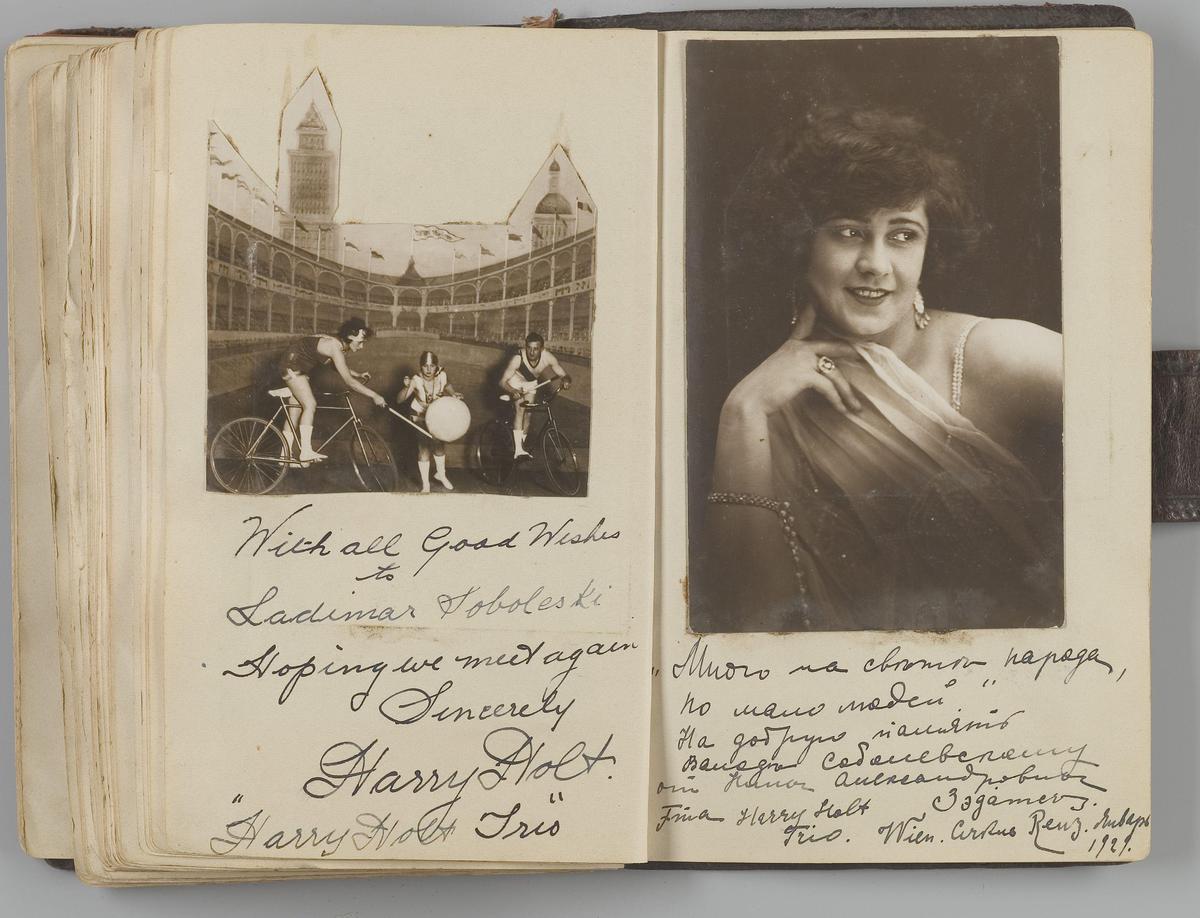 With all Good Wishes
to
Ladimar Soboleski
Hoping we meet again
Sincerely
Harry Holt.
"Harry Holt Trio"
"Много на свѣтѣ народа,
но мало людей."
На добрую память
Соболевскому
от Нины Александровны
Harry Holt
Trio. Wien. Cirkus Renz. Январь
1929.